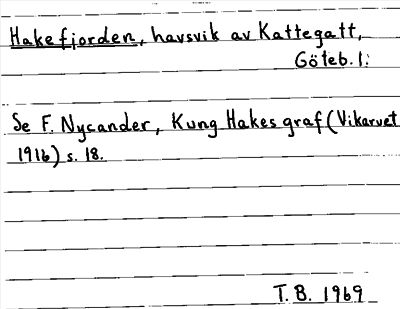 Hakefjorden, havsvik av Kattegatt,
Göteb. l:
Se F. Nycander, Kung Hakes graf (Vikarvet
1916) s. 18.
T. B. 1969